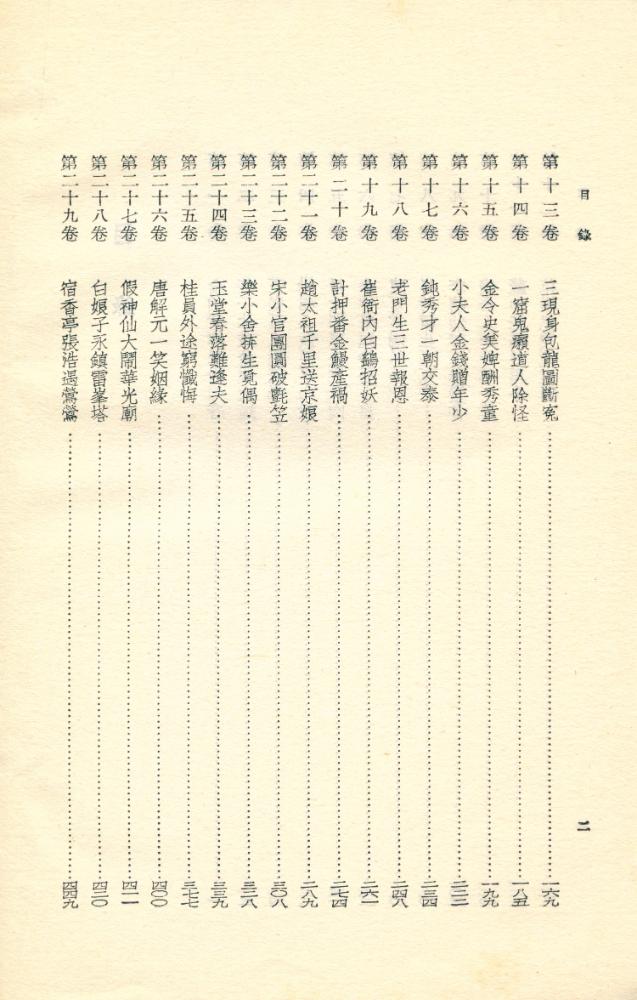 目錄
第十三卷 三現身包龍圖斷冤……一六九
第十四卷 一窟鬼癩道人除怪……一八五
第十五卷 金令史美婢酬秀童……一九九
第十六卷 小夫人金錢贈年少……二二二
第十七卷 鈍秀才一朝交泰……二三四
第十八卷 老門生三世報恩……二四八
第十九卷 崔衙內白鷂招妖……二六一
第二十卷 計押番金鰻產禍……二七四
第二十一卷 趙太祖千里送京娘……二八九
第二十二卷 宋小官團圓破氈笠……三〇八
第二十三卷 樂小舍拚生覓偶……三二八
第二十四卷 玉堂春落難逢夫……三三九
第二十五卷 桂員外途窮懺悔……三七七
第二十六卷 唐解元一笑姻緣……四〇〇
第二十七卷 假神仙大鬧華光廟……四一一
第二十八卷 白娘子永鎮雷峯塔……四二〇
第二十九卷 宿香亭張浩遇鶯鶯……四四九
二